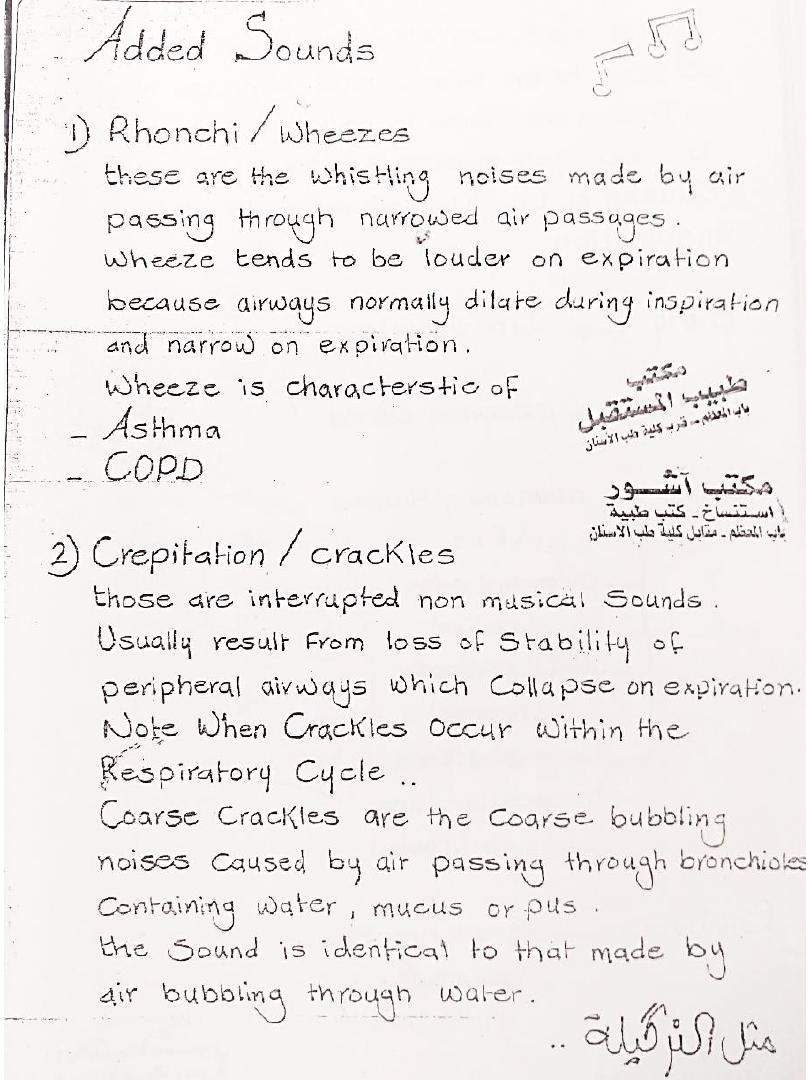 Added Sounds
1) Rhonchi / Wheezes
these are the whistling noises made by air
passing through narrowed air passages.
Wheeze tends to be louder on expiration
because airways normally dilate during inspiration
and narrow on expiration.
Wheeze is characterstic of
- Asthma
- COPD
مكتب
طبيب المستقبل
باب المعظم - قرب كلية طب الأسنان
مكتب آشور
استنساخ - كتب طبية
باب المعظم - مقابل كلية طب الاسنان
2) Crepitation / crackles
those are interrupted non musical sounds.
Usually result from loss of stability of
peripheral airways which Collapse on expiration.
Note When Crackles Occur within the
Respiratory Cycle ..
Coarse Crackles are the Coarse bubbling
noises Caused by air passing through bronchioles
Containing water, mucus or pus.
the Sound is identical to that made by
air bubbling through water.
مثل النركيلة ..